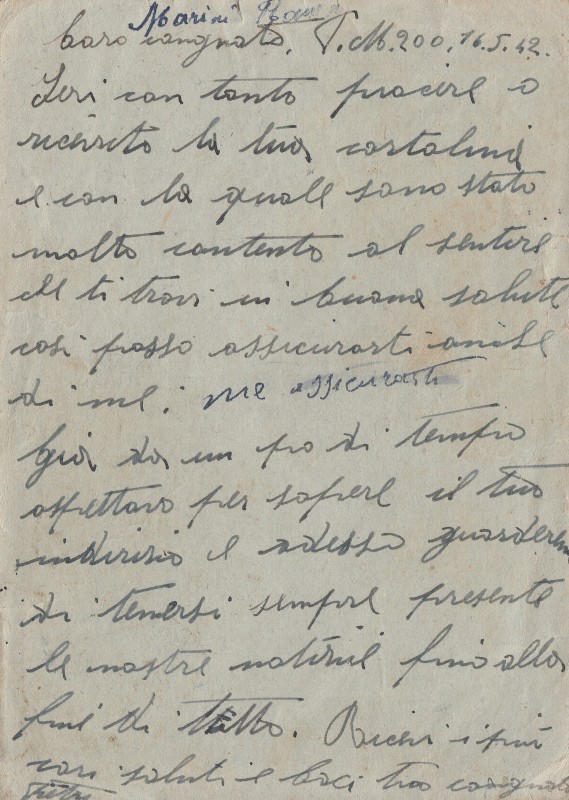 Marini
caro congnato, P.M. 200, 16.5.42.
Ieri con tanto piacere o
ricevuto la tua cartolina
e con la quale sono stato
molto contento al sentire
che ti trovi in buona salute
cosi posso assicurarti anche
di me. me assicurarti
Già da un po di tempo
aspettavo per sapere il tuo
indirizio e adesso guarderem
di tenersi sempre presente
le nostre notizie fino alla
fine di tutto. Ricevi i più
cari saluti e baci tuo congnato
Pietro